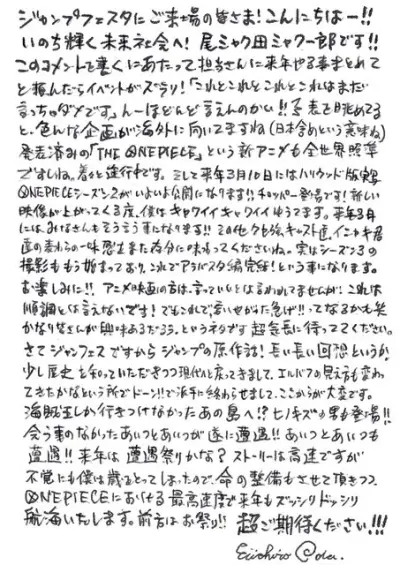 ジャンプフェスタにご来場の皆さま！こんにちはー!!
いのち輝く未来社会へ！尾ミャク田ミャクー郎です!!
このコメントを書くにあたって担当さんに来年やる事まとめて
と頼んだらイベントがズラリ！「これとこれとこれとこれはまだ
言っちゃダメです」んーほとんど言えんのかい!!
表を眺めてると、色んな企画が海外に向いてますね(日本含めという意味ね)
発表済みの「THE ONE PIECE」という新アニメも全世界照準
ですしね。着々と進行中です。そして来年3月10日にはハリウッド版実写
ONE PIECEシーズン2がいよいよ公開になります!!チョッパー登場です！新しい
映像が上がってくる度、僕はキャワイイキャワイイゆうてます。来年3月
にはみなさんもそう言う事になります!!その他クセ強キャスト達、イニャキ君
達の変わらぬ一味感もまた存分に味わってくださいね。実はシーズン3の
撮影ももう始まっており、これでアラバスタ編完結！という事になります。
お楽しみに!!アニメ映画の方は、言っていいとは言われてませんが、これは
順調とは言えないです！でもこれで、言いせがけた急げ!!ってなるかも笑
かなり皆さんが興味あるだろう、というネタです超気長に待っててください。
さてジャンフェスですからジャンプの原作話！長い長い回想というか
少し歴史を知っていただきつつ現代へと戻ってきまして、エルバフの見え方も変わ
ってきたかなという所でドーン!!で派手に終わらせまして、ここからが大変です。
海賊王しか行きつけなかったあの島へ!?ヒノキズの男も登場!!
会う事のなかったあいつとあいつが遂に遭遇!!あいつとあいつも
遭遇!!来年は遭遇祭りかな？ストーリーは高速ですが
不覚にも僕は歳をとってしまったので、命の整備もさせて頂きつつ
ONE PIECEにおける最高速度で来年もズッシリドッシリ
航海いたします。前方はお祭り!!超ご期待ください!!!
Eiichiro Oda.